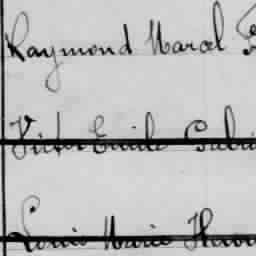 Raymond Marcel
Victor Emile
Louis Marie